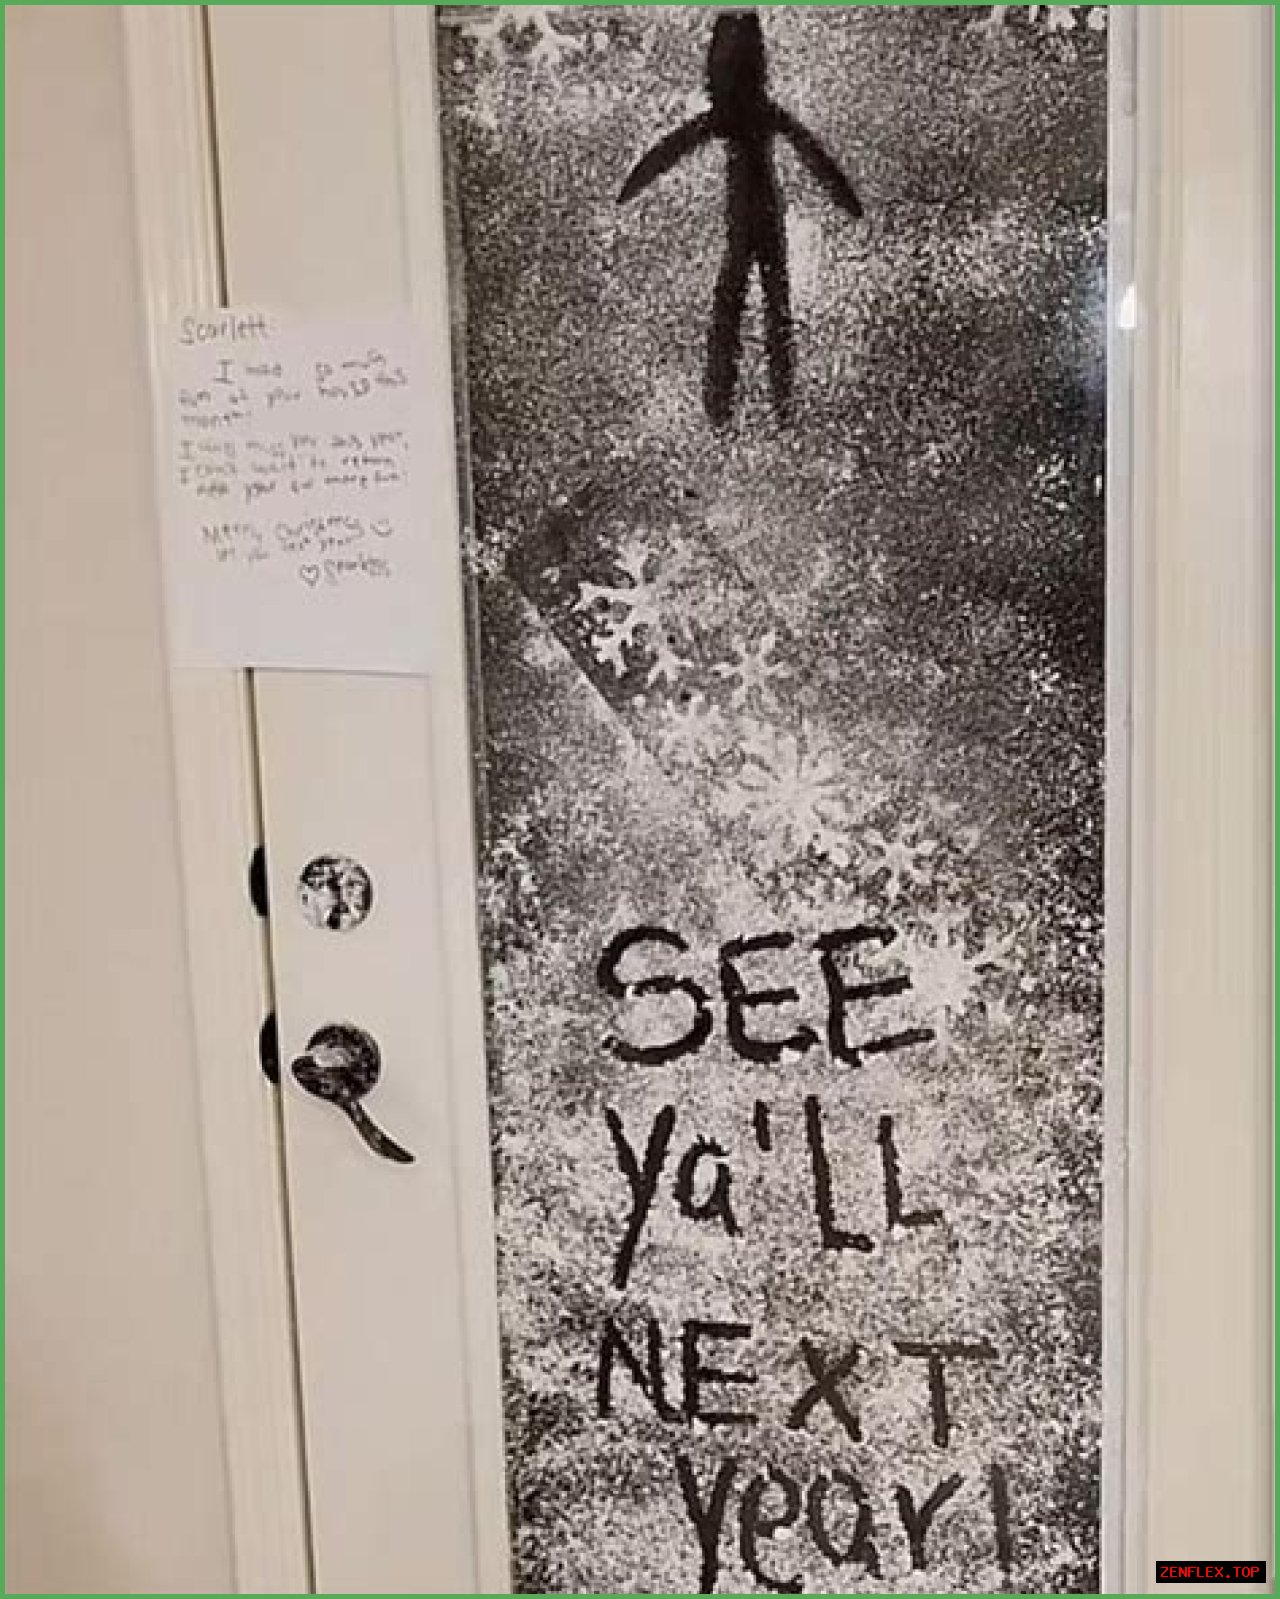 Scarlett
I had so much
fun at your house this
month!
I will miss you this year,
I can't wait to return
next year for more fun!
Merry Christmas
see you next year
SEE
Ya'LL
NEXT
year!
ZENFLEX.TOP